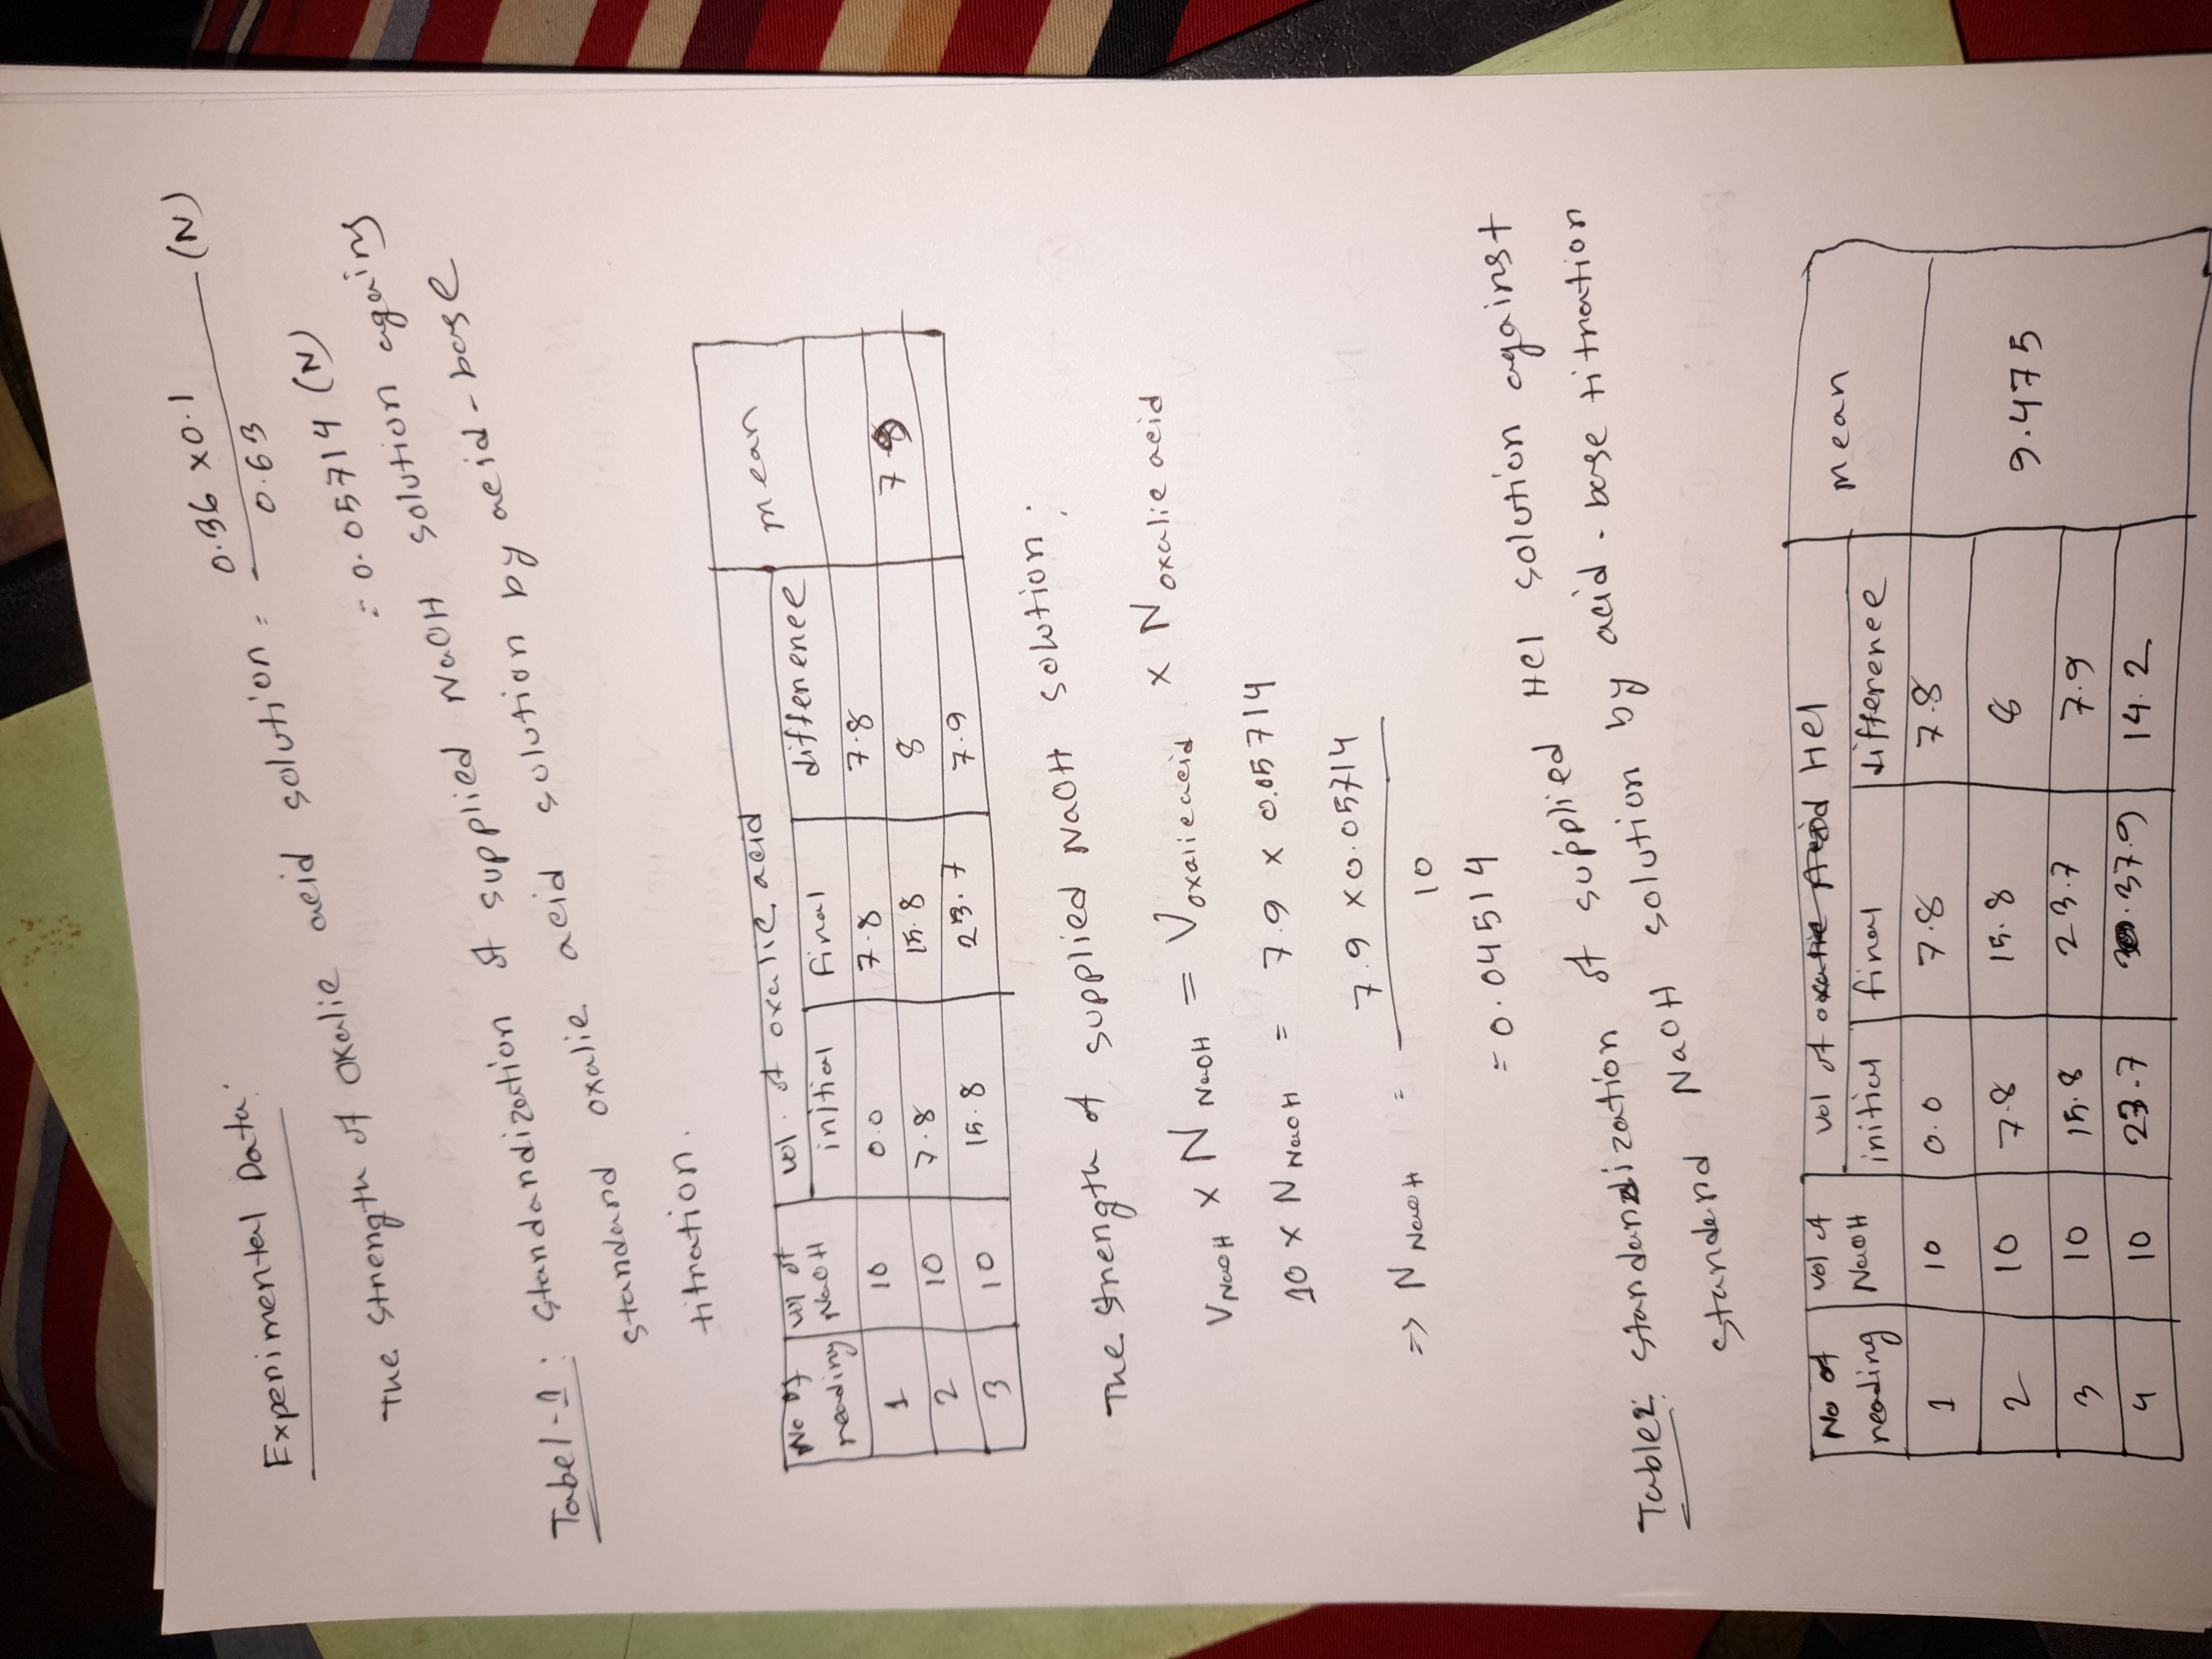 Experimental Data:
The strength of oxalic acid solution = 0.36 x 0.1 / 0.63 (N)
= 0.05714 (N)
Tabel-1: standardization of supplied NaOH solution agains
standard oxalic acid solution by acid-base
titration.
No of reading | vol of NaOH | vol. of oxalic acid | mean
initial | final | difference
1 | 10 | 0.0 | 7.8 | 7.8
2 | 10 | 7.8 | 15.8 | 8 | 7.9
3 | 10 | 15.8 | 23.7 | 7.9
The strength of supplied NaOH solution:
V NaOH x N NaOH = V oxalic acid x N oxalic acid
10 x N NaOH = 7.9 x 0.05714
=> N NaOH = 7.9 x 0.05714 / 10
= 0.04514
Table2: standardization of supplied Hcl solution against
standard NaOH solution by acid-base titration
No of reading | vol of NaOH | vol of oxalic Acid Hcl | mean
initial | final | difference
1 | 10 | 0.0 | 7.8 | 7.8
2 | 10 | 7.8 | 15.8 | 8 | 9.475
3 | 10 | 15.8 | 23.7 | 7.9
4 | 10 | 23.7 | 37.9 | 14.2